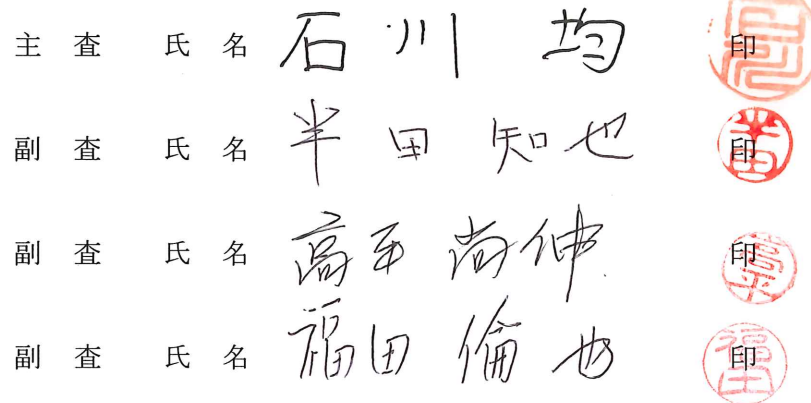 主 査 氏 名 石川 均 印
副 査 氏 名 半田 知也 印
副 査 氏 名 高平 尚伸 印
副 査 氏 名 福田 倫也 印